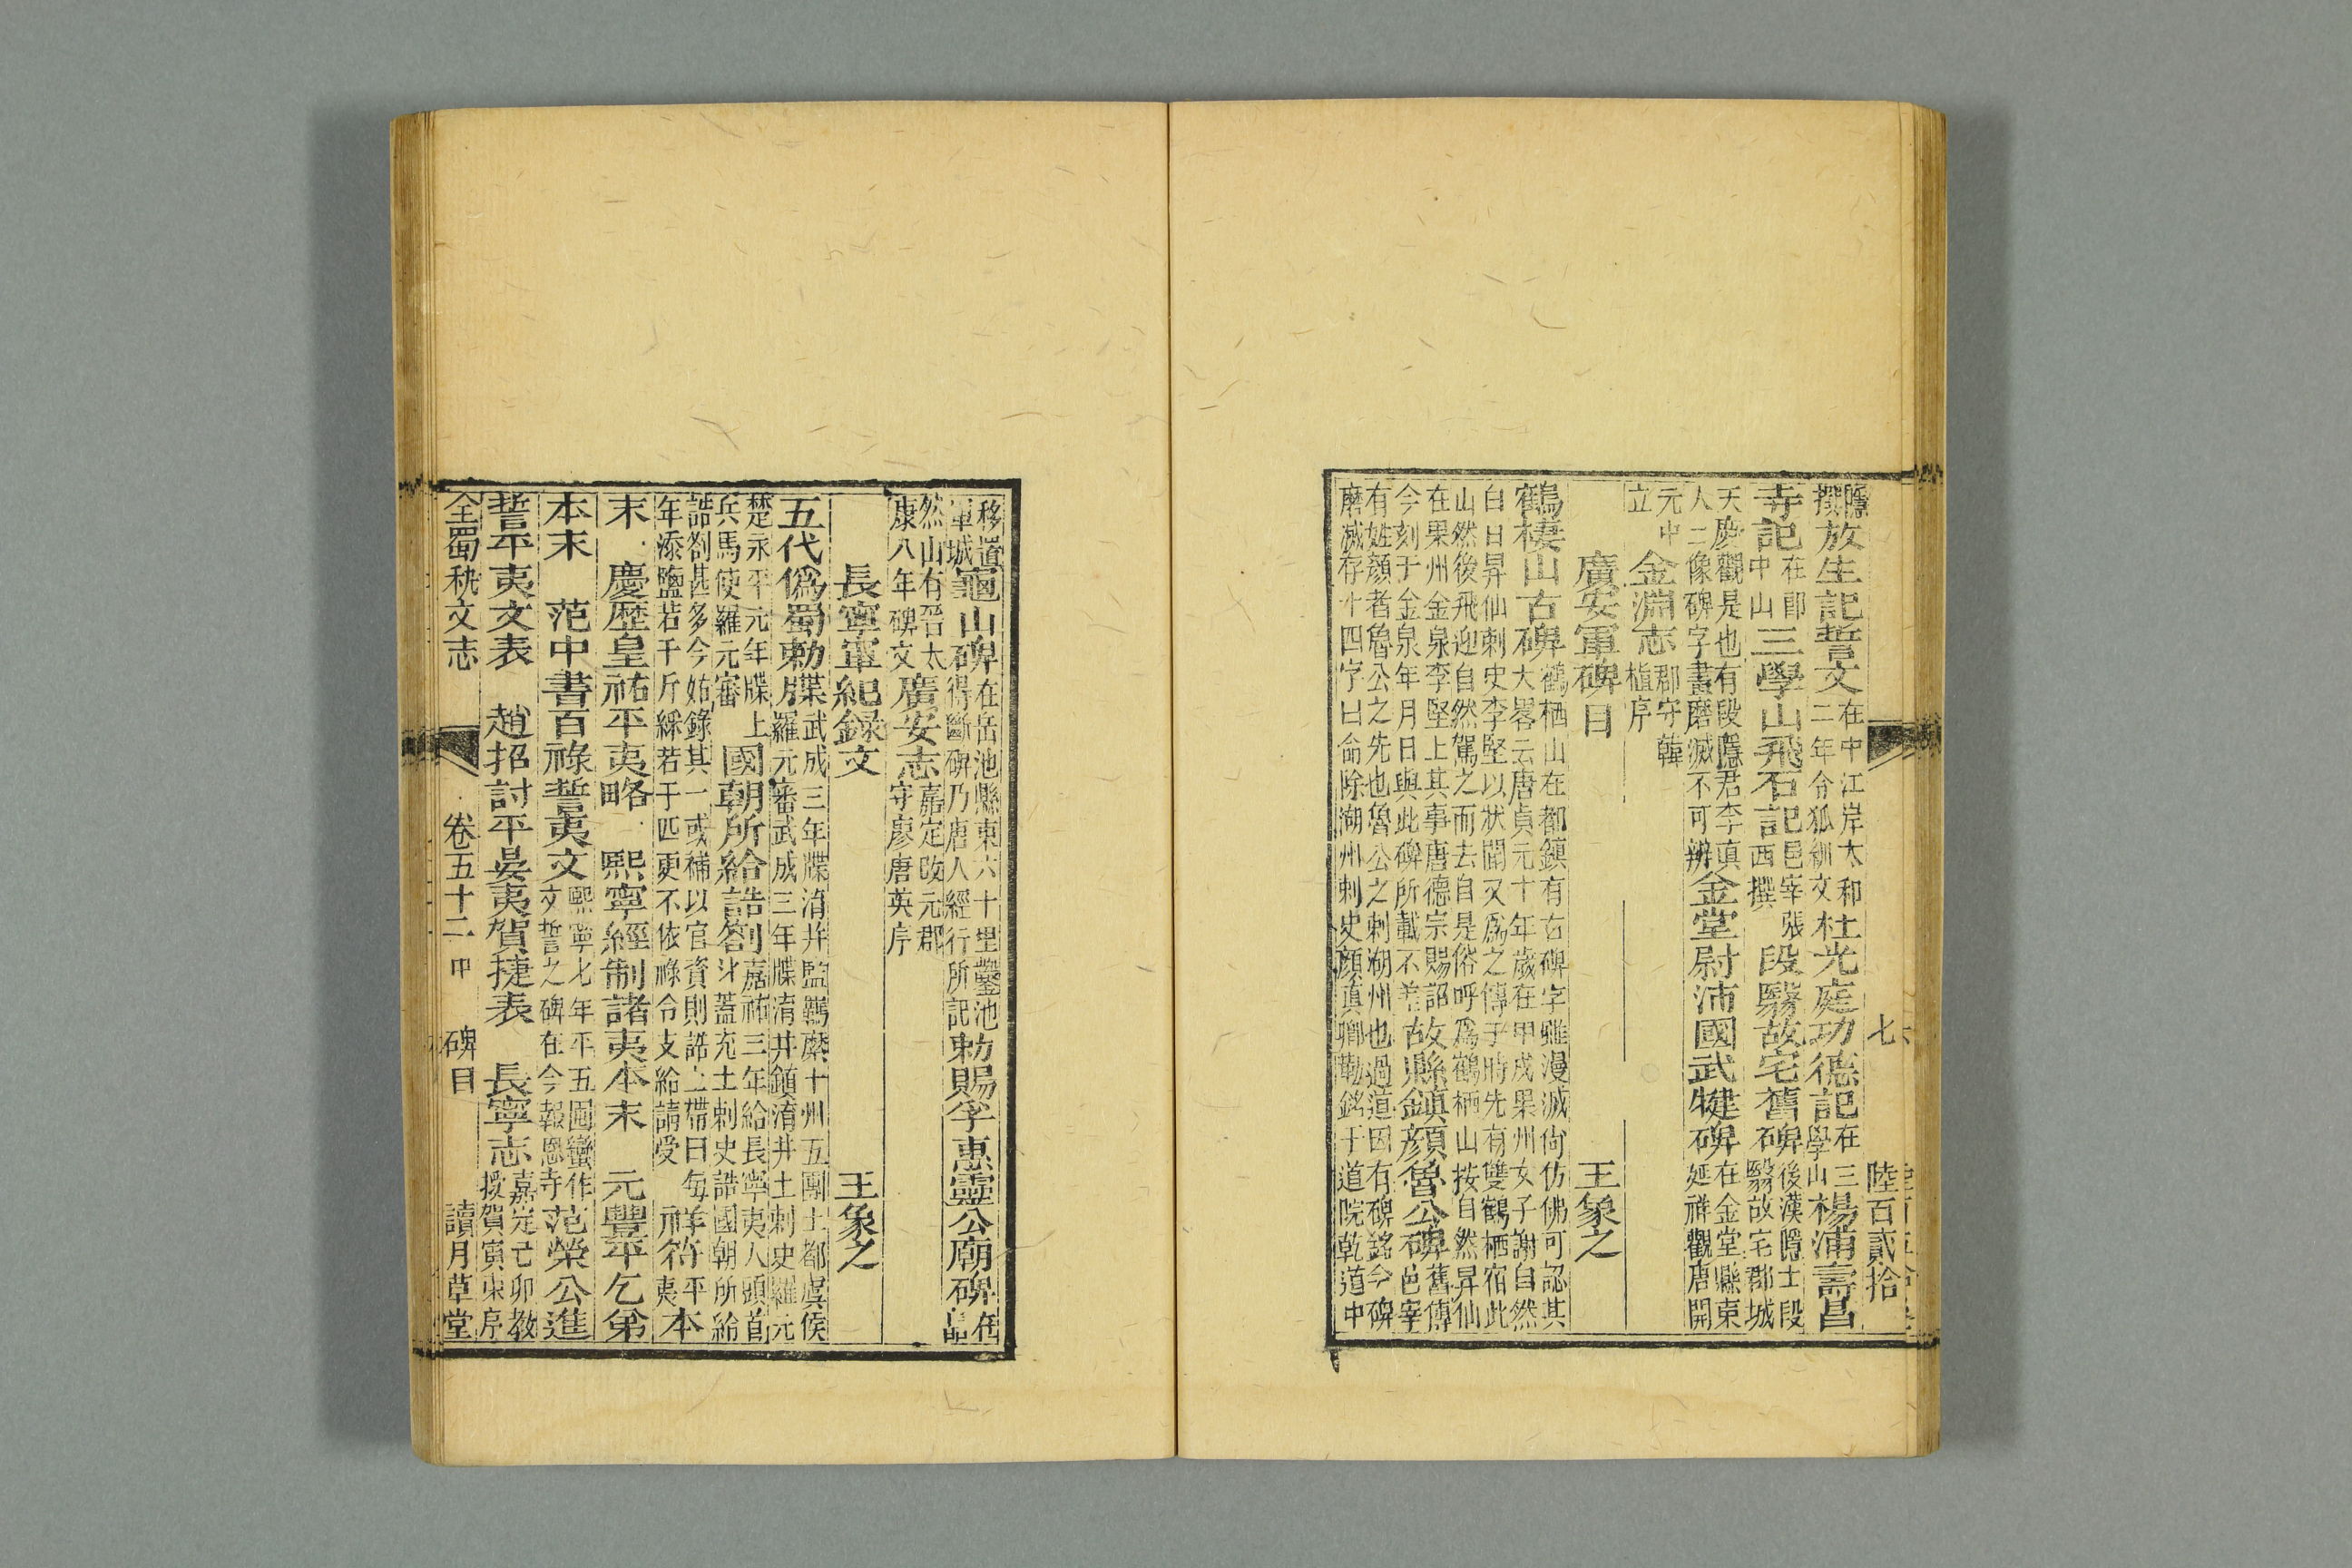 七 陸百貳拾
隱
撰
放生記誓文
在中江岸太和
二年令狐訓文
杜光庭功德記
在三
學山
楊浦壽昌
寺記
在郎
中山
三學山飛石記
邑宰張
西撰
段翳故宅舊碑
後漢隱士段
翳故宅郡城
天慶觀是也有段隱君李真
人二像碑字畫磨滅不可辨
金堂尉沛國武犍碑
在金堂縣東
延祥觀唐開
元中
立
金淵志
郡守韓
植序
廣安軍碑目 王象之
鶴棲山古碑
鶴栖山在都鎮有古碑字雖漫滅尙仿佛可認其
大畧云唐貞元十年歲在甲戌果州女子謝自然
白日昇仙刺史李堅以狀聞又爲之傳于時先有雙鶴栖宿此
山然後飛迎自然駕之而去自是俗呼爲鶴栖山按自然昇仙
在果州金泉李堅上其事唐德宗賜詔
今刻于金泉年月日與此碑所載不差
故縣鎮顔魯公碑
舊傳
邑宰
有姓顔者魯公之先也魯公之刺湖州也過道因有碑銘今碑
磨滅存十四字曰命除湖州刺史顔真卿勒銘于道院乾道中
移置
軍城
龜山碑
在岳池縣東六十里鑿池
得斷碑乃唐人經行所記
勅賜孚惠靈公廟碑
在
然山有晉太
康八年碑文
廣安志
嘉定改元郡
守廖唐英序
長寧軍紀録文 王象之
五代僞蜀勅牒
武成三年牒淯井監羈縻十州五團土都虞侯
羅元審武成三年牒淯井鎮淯井土刺史羅元
楚永平元年牒上
兵馬使羅元審
國朝所給誥劄
嘉祐三年給長寧夷人頭首
斗蓋充土刺史誥國朝所給
誥劄甚多今姑錄其一或補以官資則誥上帶曰每
年添鹽若干斤綵若干匹更不依祿令支給請受
祥符
平
夷
本
末 慶歷皇祐平夷略 熙寧經制諸夷本末 元豐平乞弟
本末 范中書百祿誓夷文
熙寧七年平五囤蠻作
文誓之碑在今報恩寺
范榮公進
誓平夷文表 趙招討平晏夷賀捷表 長寧志
嘉定己卯教
授賀寅東序
全蜀秇文志 卷五十二中 碑目 讀月草堂